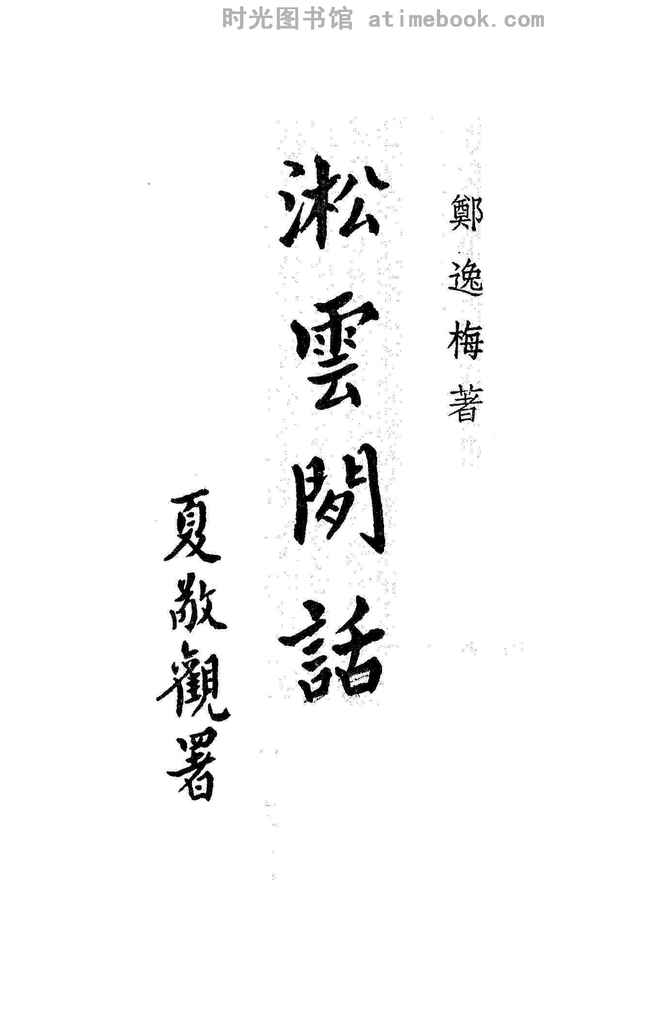 时光图书馆 - atimebook.com
鄭逸梅著
淞雲閒話
夏敬觀署